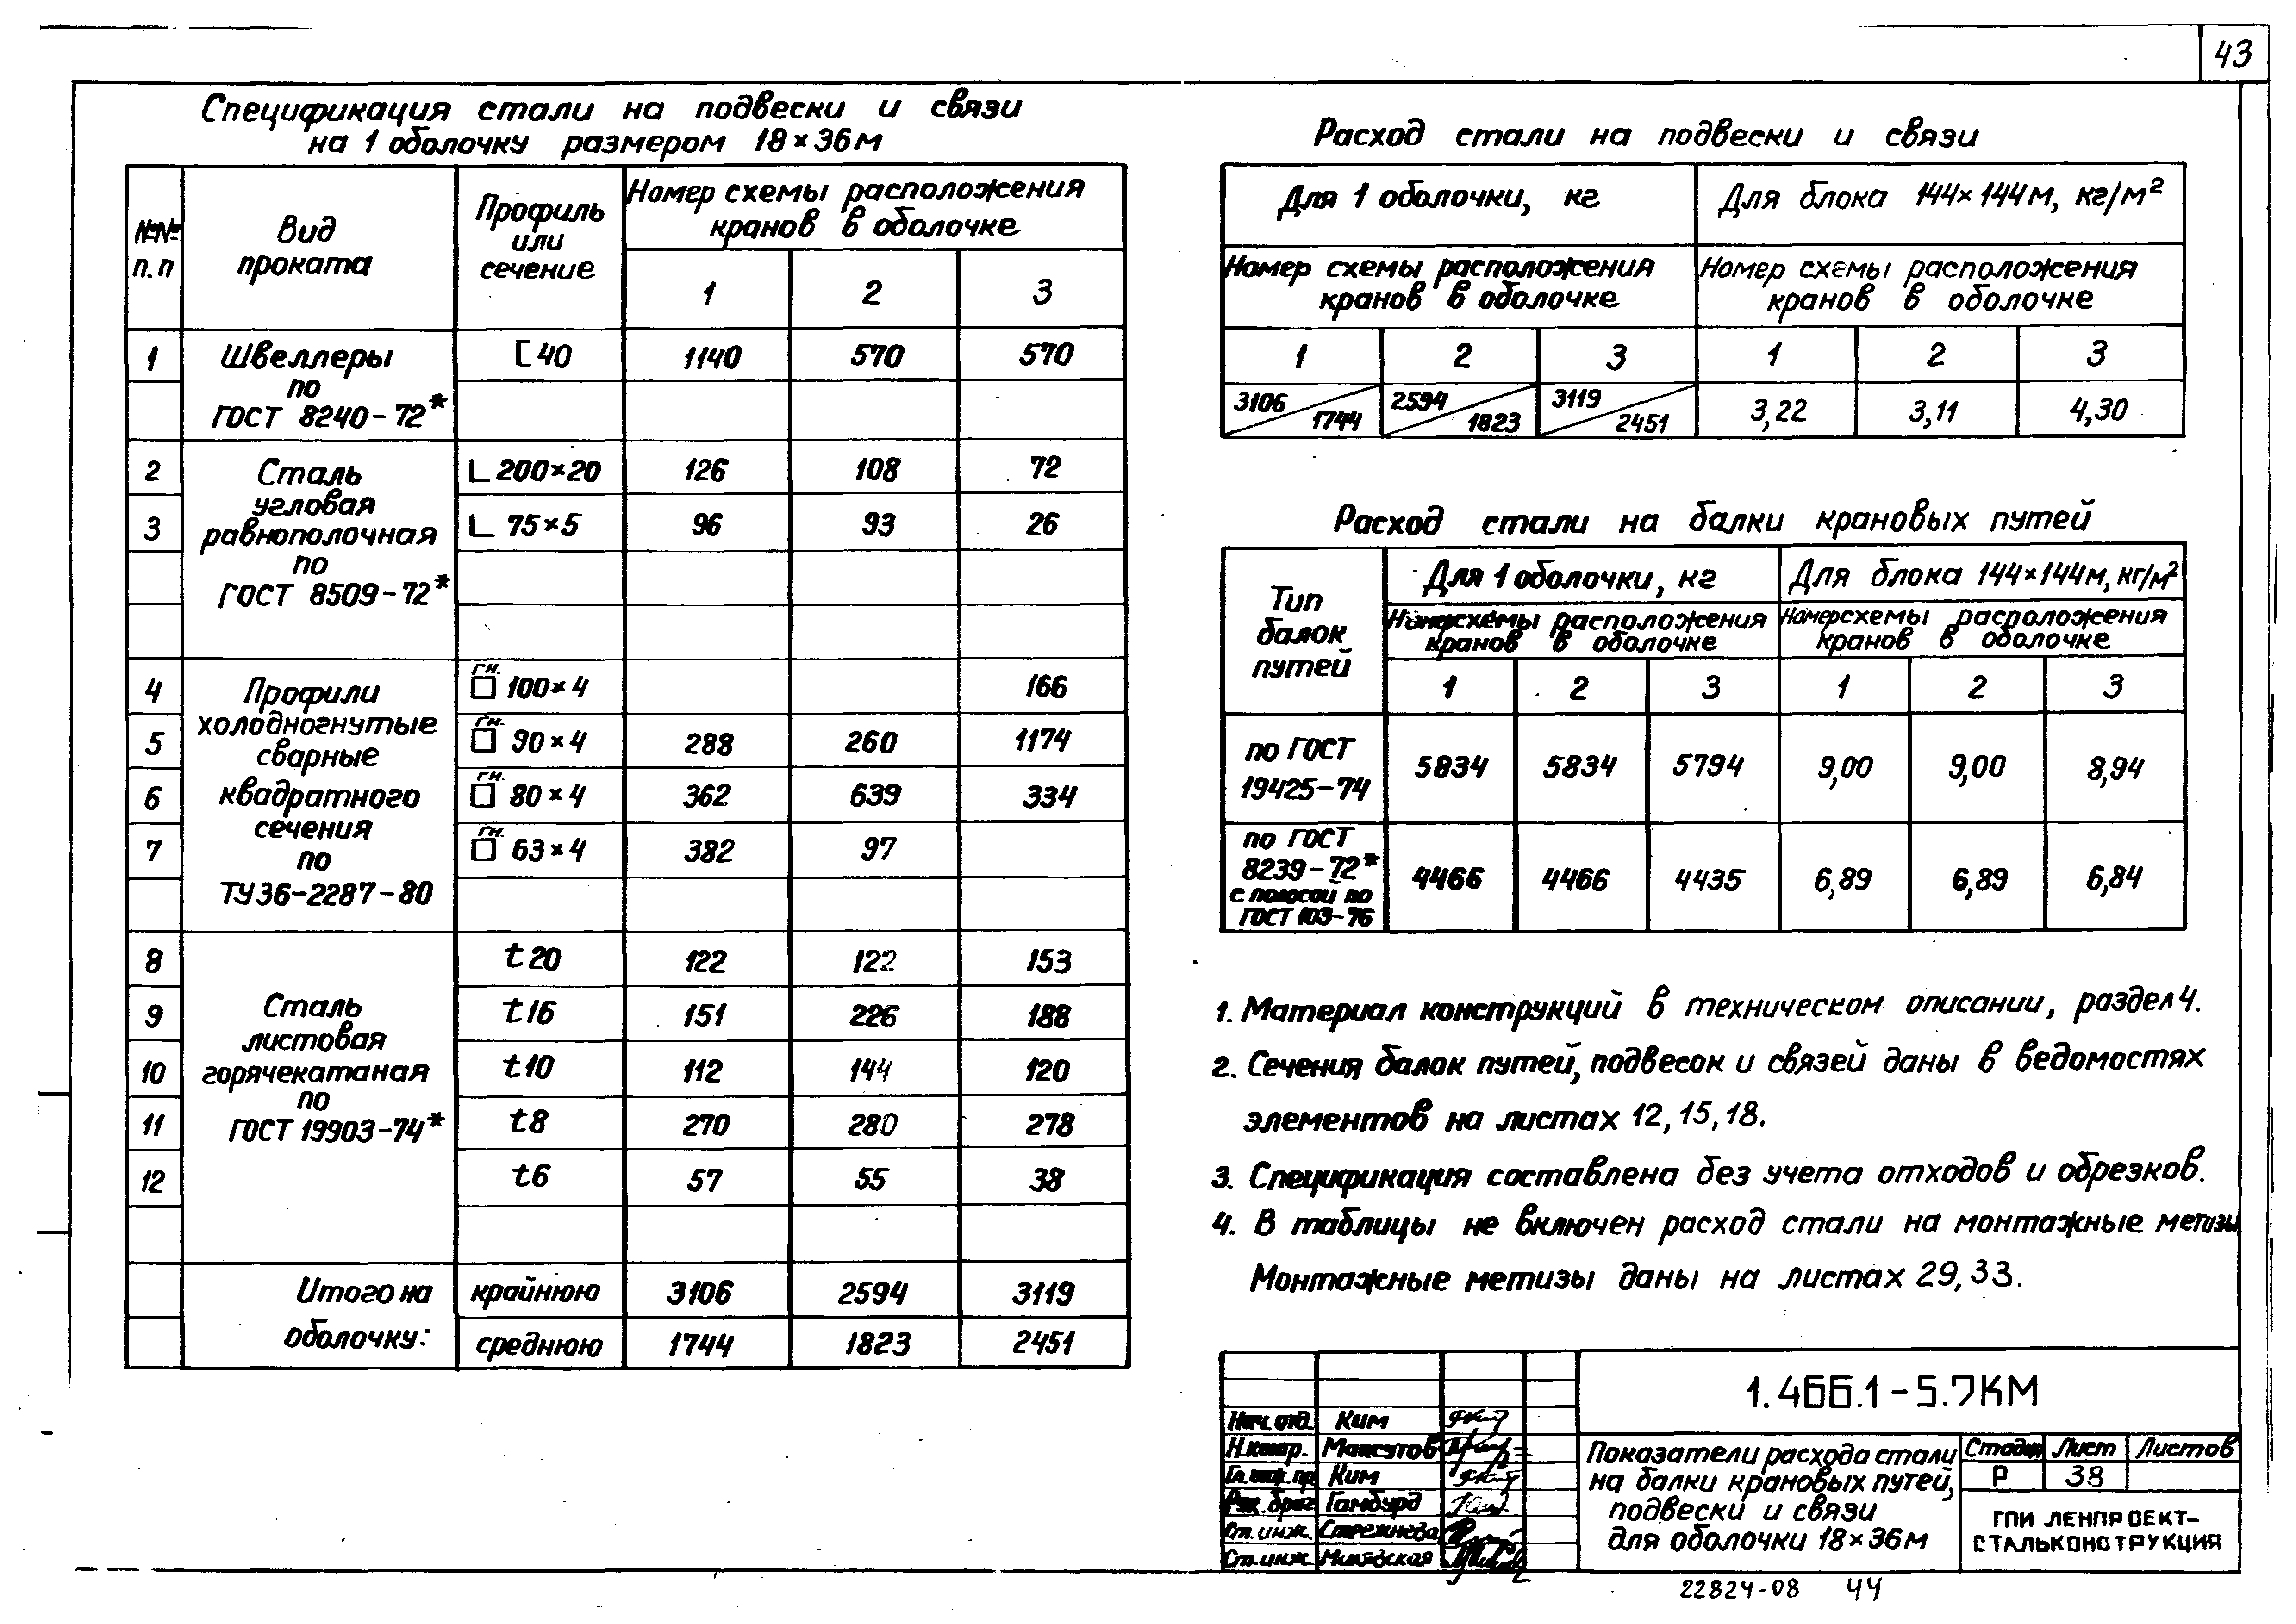 43
Спецификация стали на подвески и связи
на 1 оболочку размером 18×36м
№№ п.п
Вид проката
Профиль или сечение
Номер схемы расположения кранов в оболочке
1 2 3
1 Швеллеры по ГОСТ 8240-72* [40 1140 570 570
Сталь угловая равнополочная по ГОСТ 8509-72*
2 L 200×20 126 108 72
3 L 75×5 96 93 26
Профили холодногнутые сварные квадратного сечения по ТУ36-2287-80
4 гн. □ 100×4 166
5 гн. □ 90×4 288 260 1174
6 гн. □ 80×4 362 639 334
7 гн. □ 63×4 382 97
Сталь листовая горячекатаная по ГОСТ 19903-74*
8 t20 122 122 153
9 t16 151 226 188
10 t10 112 144 120
11 t8 270 280 278
12 t6 57 55 38
Итого на оболочку:
крайнюю 3106 2594 3119
среднюю 1744 1823 2451
Расход стали на подвески и связи
Для 1 оболочки, кг
Для блока 144×144м, кг/м²
Номер схемы расположения кранов в оболочке
Номер схемы расположения кранов в оболочке
1 2 3 1 2 3
3106/1744 2594/1823 3119/2451 3,22 3,11 4,30
Расход стали на балки крановых путей
Тип балок путей
Для 1 оболочки, кг
Для блока 144×144м, кг/м²
Номер схемы расположения кранов в оболочке
Номер схемы расположения кранов в оболочке
1 2 3 1 2 3
по ГОСТ 19425-74 5834 5834 5794 9,00 9,00 8,94
по ГОСТ 8239-72* с полосой по ГОСТ 103-76 4466 4466 4435 6,89 6,89 6,84
1. Материал конструкций в техническом описании, раздел 4.
2. Сечения балок путей, подвесок и связей даны в ведомостях
элементов на листах 12, 15, 18.
3. Спецификация составлена без учета отходов и обрезков.
4. В таблицы не включен расход стали на монтажные метизы
Монтажные метизы даны на листах 29, 33.
Нач. отд. Ким
Н.контр. Максутов
Гл. инж. пр. Ким
Рук. бриг Гамбурд
Ст. инж. Стрежнева
Ст. инж.
1.466.1-5.7КМ
Показатели расхода стали
на балки крановых путей,
подвески и связи
для оболочки 18×36м
Стадия Лист Листов
Р 38
ГПИ ЛЕНПРОЕКТ-
СТАЛЬКОНСТРУКЦИЯ
22824-08 44